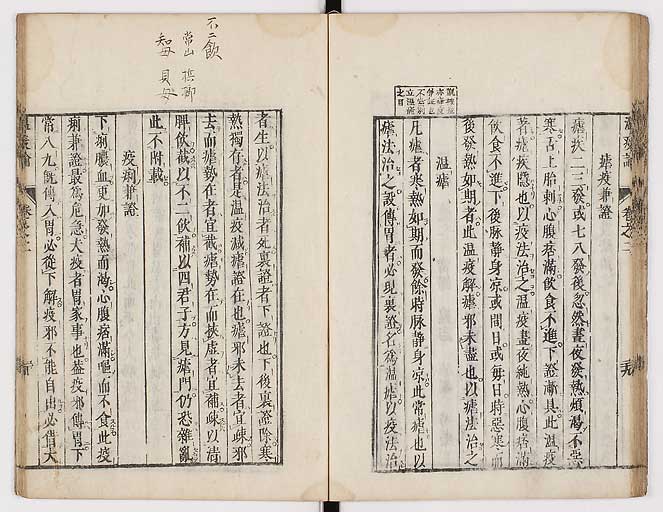 瘧疫兼證
瘧疾二三發或七八發後忽然晝夜發熱煩渴不惡
寒舌上胎刺心腹痞滿飲食不進下證漸具此溫疫
著瘧疾隱也以疫法治之溫疫晝夜純熱心腹痞滿
飲食不進下後脉静身凉或間日或毎日時惡寒而
後發熱如期者此溫疫解瘧邪未盡也以瘧法治之
溫瘧
凡瘧者寒熱如期而發餘時脉静身凉此常瘧也以
瘧法治之設傳胃者必現裏證名爲溫瘧以疫法治
者生以瘧法治者死裏證者下證也下後裏證除寒
熱獨存者是温疫減瘧證在也瘧邪未去者宜疎邪
去而瘧勢在者宜截瘧勢在而挾虛者宜補疎以清
脾飲截以不二飲補以四君子方見瘧門仍恐雜亂
此不附載
疫痢兼證
下痢膿血更加發熱而渴心腹痞滿嘔而不食此疫
痢兼證最爲危急夫疫者胃家事也蓋疫邪傳胃下
常八九既傳入胃必從下解疫邪不能自出必借大
不二飲
常山 檳榔
知母 貝母